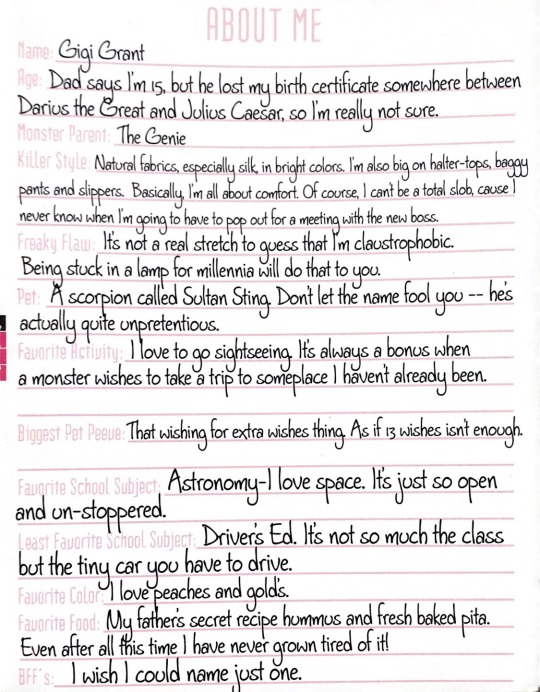 ABOUT ME
Name: Gigi Grant
Age: Dad says I'm 15, but he lost my birth certificate somewhere between
Darius the Great and Julius Caesar, so I'm really not sure.
Monster Parent: The Genie
Killer Style: Natural fabrics, especially silk, in bright colors. I'm also big on halter-tops, baggy
pants and slippers. Basically, I'm all about comfort. Of course, I can't be a total slob, cause I
never know when I'm going to have to pop out for a meeting with the new boss.
Freaky Flaw: It's not a real stretch to guess that I'm claustrophobic.
Being stuck in a lamp for millennia will do that to you.
Pet: A scorpion called Sultan Sting. Don't let the name fool you -- he's
actually quite unpretentious.
Favorite Activity: I love to go sightseeing. It's always a bonus when
a monster wishes to take a trip to someplace I haven't already been.
Biggest Pet Peeve: That wishing for extra wishes thing. As if 13 wishes isn't enough.
Favorite School Subject: Astronomy-I love space. It's just so open
and un-stoppered.
Least Favorite School Subject: Driver's Ed. It's not so much the class
but the tiny car you have to drive.
Favorite Color: I love peaches and gold's.
Favorite Food: My father's secret recipe hummus and fresh baked pita.
Even after all this time I have never grown tired of it!
BFF's: I wish I could name just one.